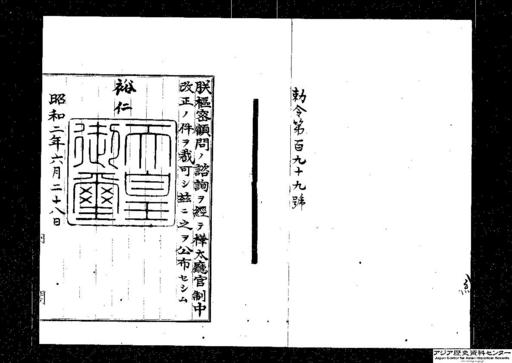 勅令第百九十九號
朕樞密顧問ノ諮詢ヲ經テ樺太廳官制中
改正ノ件ヲ裁可シ茲ニ之ヲ公布セシム
裕仁
天皇御璽
昭和二年六月二十八日
アジア歴史資料センター
Japan Center for Asian Historical Records